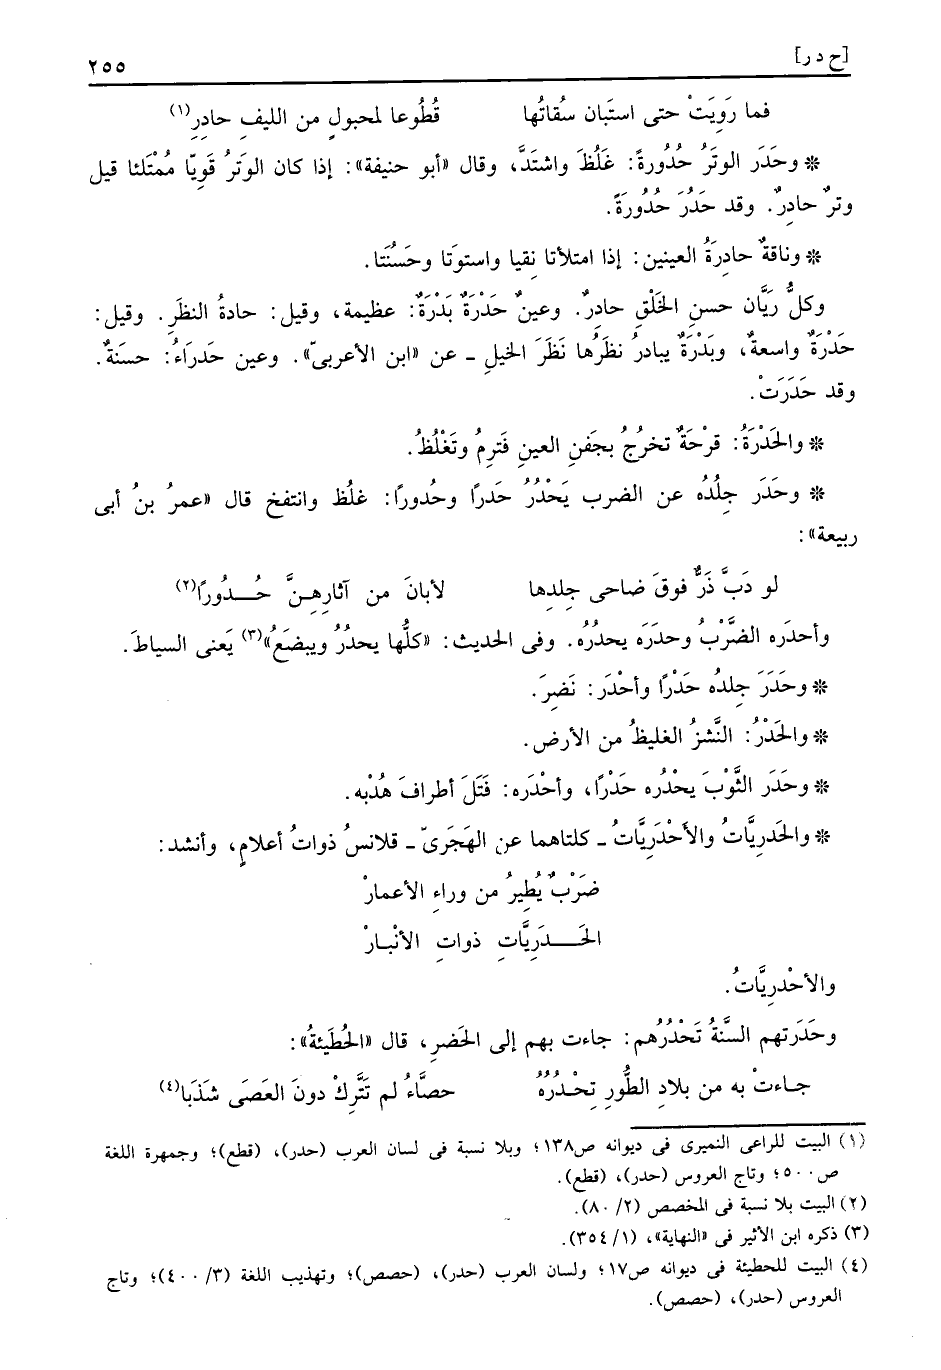 [ح د ر]
٢٥٥
فما رَوِيَتْ حتى استَبان سقُاتُها قُطُوعا لمحبولٍ من الليفِ حادِرِ(١)
* وحَدَر الوتَرُ حُدُورةً: غَلُظَ واشتَدَّ، وقال «أبو حنيفة»: إذا كان الوَتَرُ قَوِيّا مُمْتَلئا قيل
وترٌ حادِرٌ. وقد حَدُرَ حُدُورَةً.
* وناقةٌ حادِرَةُ العينين: إذا امتلأتا نِقيا واستوَتا وحَسُنَتا.
وكلُّ رَيَّان حسنِ الخَلْقِ حادِرٌ. وعينٌ حَدْرَةٌ بَدْرَةٌ: عظيمة، وقيل: حادةُ النظَرِ. وقيل:
حَدْرَةٌ واسعةٌ، وبَدْرَةٌ يبادرُ نظرُها نَظَرَ الخيلِ ـ عن «ابن الأعربىّ». وعين حَدرَاءُ: حسَنةٌ.
وقد حَدَرَتْ.
* والحَدْرَةُ: قرْحَةٌ تخرُجُ بجَفنِ العينِ فَترِمُ وتَغْلُظُ.
* وحَدَرَ جلدُه عن الضربِ يَحْدُرُ حَدراً وحُدورًا: غلُظ وانتفخ قال «عمرُ بنُ أبى
ربيعة»:
لو دَبَّ ذَرٌّ فوقَ ضاحى جِلدِها لأبانَ من آثارِهِنَّ حُدُورًا(٢)
وأحدَره الضَّرْبُ وحدَرَه يحدُرُه. وفى الحديث: «كلُّها يحدُرُ ويبضَعُ»(٣) يَعنى السياطَ.
* وحَدَرَ جلدُه حَدْرًا وأحْدَر: نَضِرَ.
* والحَدْرُ: النَّشزُ الغليظُ من الأرض.
* وحَدَر الثَّوْبَ يحْدُره حَدْرًا، وأحْدَره: فَتَلَ أطرافَ هُدْبه.
* والحَدرِيَّاتُ والأَحْدَرِيَّاتُ ـ كلتاهما عن الهَجَرىّ ـ قلانسُ ذواتُ أعلامٍ، وأنشد:
ضَرْبٌ يُطِيرُ من وراءِ الأعمارْ
الحَدَرِيَّاتِ ذواتِ الأنْبارْ
والأحْدرِيَّاتُ.
وحَدَرَتهم السنَّةُ تَحْدُرُهم: جاءت بهم إلى الحَضرِ، قال «الحُطيئةُ»:
جاءتْ به من بلادِ الطُّورِ تحْدُرُهُ حصَّاءُ لم تَتَّرِكْ دونَ العَصَى شَذَبا(٤)
(١) البيت للراعى النميرى فى ديوانه ص١٣٨؛ وبلا نسبة فى لسان العرب (حدر)، (قطع)؛ وجمهرة اللغة
ص٥٠٠؛ وتاج العروس (حدر)، (قطع).
(٢) البيت بلا نسبة فى المخصص (٢/ ٨٠).
(٣) ذكره ابن الأثير فى «النهاية»، (١/ ٣٥٤).
(٤) البيت للحطيئة فى ديوانه ص١٧؛ ولسان العرب (حدر)، (حصص)؛ وتهذيب اللغة (٣/ ٤٠٠)؛ وتاج
العروس (حدر)، (حصص).